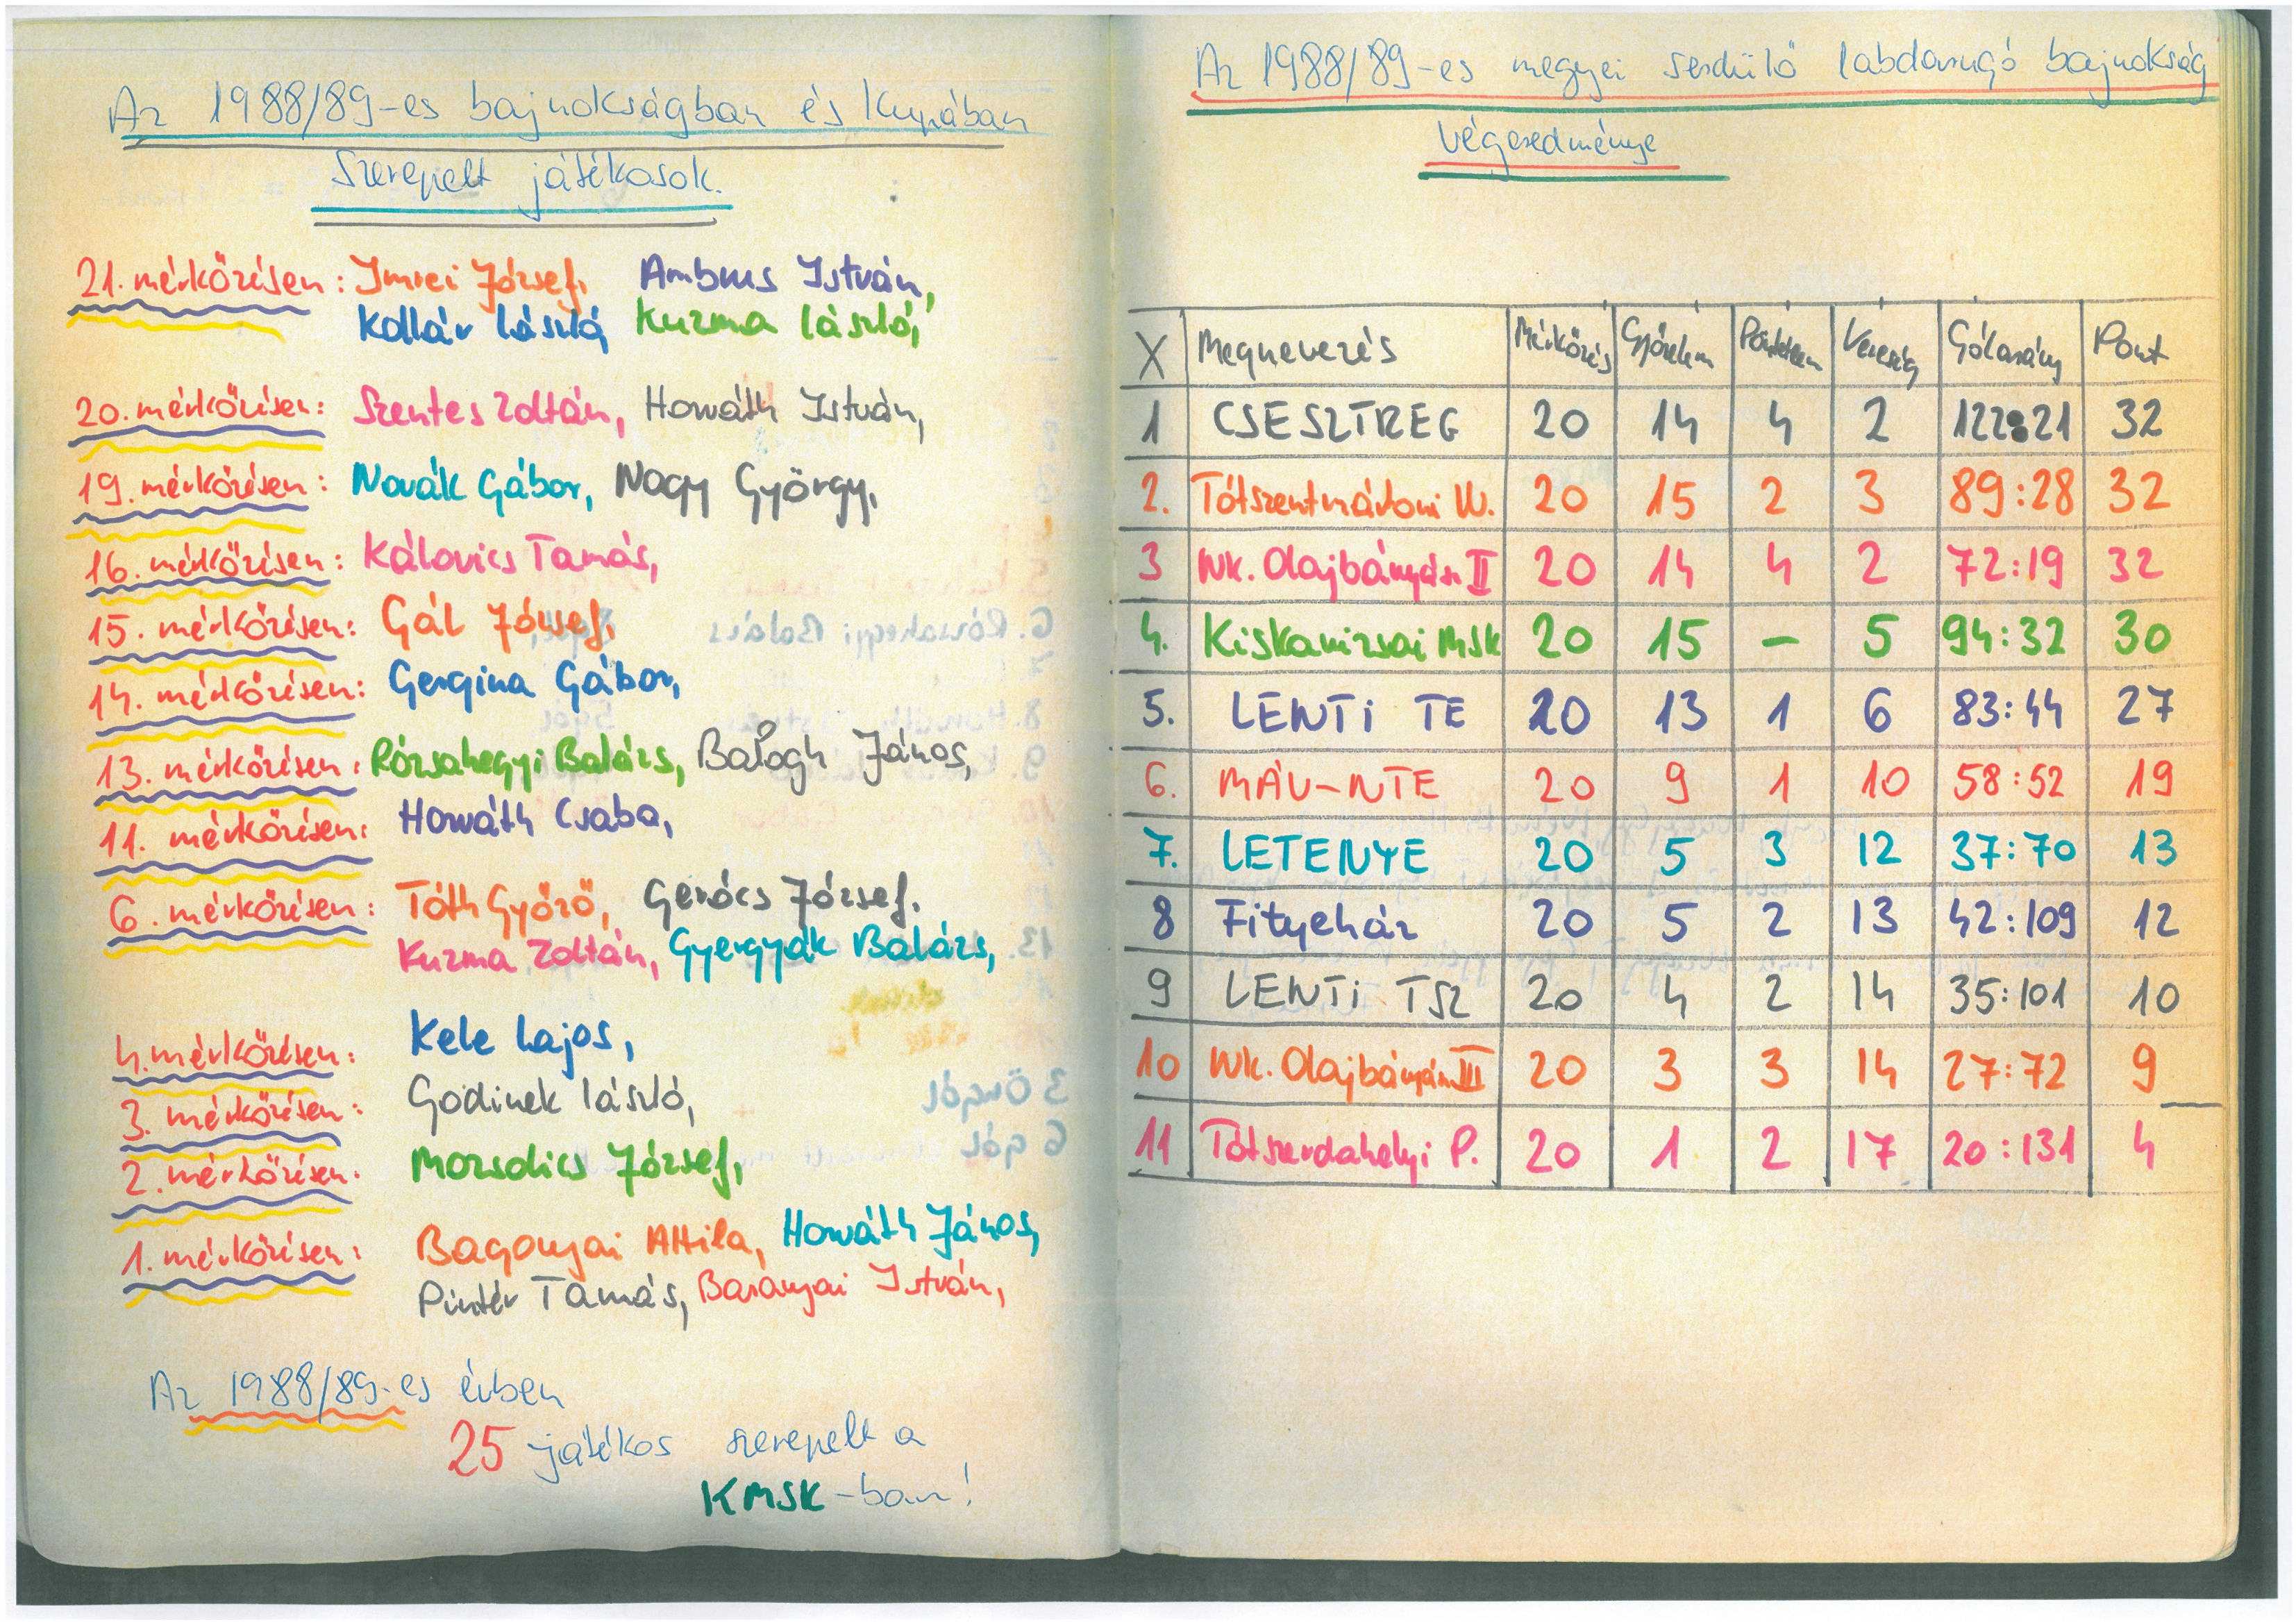 Az 1988/89-es bajnokságban és Kupában
Szerepelt játékosok.
21. mérkőzésen: Imrei József, Ambrus István,
Kollár László, Kuzma László,
20. mérkőzésen: Szentes Zoltán, Horváth István,
19. mérkőzésen: Novák Gábor, Nagy György,
16. mérkőzésen: Kálovics Tamás,
15. mérkőzésen: Gál József,
14. mérkőzésen: Gergina Gábor,
13. mérkőzésen: Rózsahegyi Balázs, Balogh János,
11. mérkőzésen: Horváth Csaba,
6. mérkőzésen: Tóth Győző, Gerócs József,
Kuzma Zoltán, Gyergyák Balázs,
4. mérkőzésen: Kele Lajos,
3. mérkőzésen: Godinek László,
2. mérkőzésen: Mozsdics József,
1. mérkőzésen: Bagonyai Attila, Horváth János,
Pintér Tamás, Baranyai István,
Az 1988/89-es évben
25 játékos szerepelt a
KMSK-ban!
Az 1988/89-es megyei serdülő labdarugó bajnokság
végeredménye
X Megnevezés Mérkőzés Győzelem Döntetlen Vereség Gólarány Pont
1 CSESZTREG 20 14 4 2 122:21 32
2. Tótszentmártoni V. 20 15 2 3 89:28 32
3 Nk. Olajbányász II 20 14 4 2 72:19 32
4. Kiskanizsai MSK 20 15 - 5 94:32 30
5. LENTI TE 20 13 1 6 83:44 27
6. MÁV-NTE 20 9 1 10 58:52 19
7. LETENYE 20 5 3 12 37:70 13
8 Fityeház 20 5 2 13 42:109 12
9 LENTI TSZ 20 4 2 14 35:101 10
10 Nk. Olajbányász III 20 3 3 14 27:72 9
11 Tótszerdahelyi P. 20 1 2 17 20:131 4